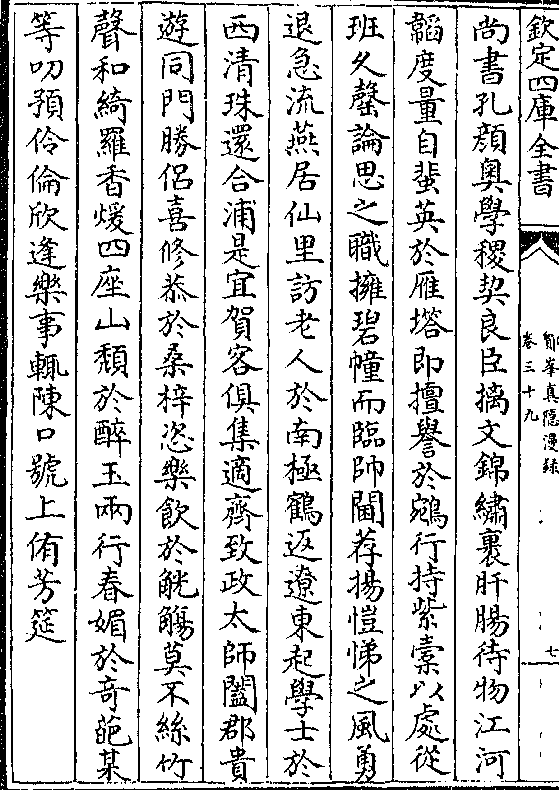 欽定四庫全書
鄮峯真隠漫録
卷三十九
七
尚書孔顔奥學稷契良臣摛文錦繡裹肝腸待物江河
韜度量自蜚英於雁塔即擅譽於鵷行持紫橐以處從
班久罄論思之職擁碧幢而臨帥閫荐揚愷悌之風勇
退急流燕居仙里訪老人於南極鶴返遼東起學士於
西清珠還合浦是宜賀客俱集適齊致政太師闔郡貴
遊同門勝侣喜修恭於桑梓恣樂飲於觥觴莫不絲竹
聲和綺羅香煖四座山頽於醉玉兩行春媚於竒葩某
等叨預伶倫欣逢樂事輒陳口號上侑芳筵